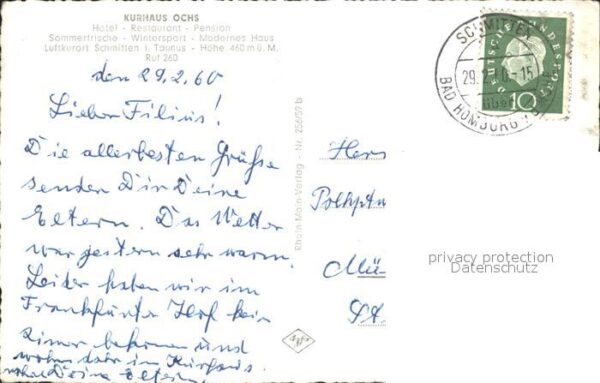 KURHAUS OCHS
Hotel - Restaurant - Pension
Sommerfrische - Wintersport - Modernes Haus
Luftkurort Schmitten i. Taunus - Höhe 460 m ü. M.
Ruf 260
den 29.2.60
Lieber Filius!
Die allerbesten Grüße
senden Dir Deine
Eltern. Das Wetter
war gestern sehr warm.
Leider haben wir im
Frankfurter Hof kein
Zimmer bekommen und
wohnen dafür im Kurhaus
Deine Eltern
Rhein-Main-Verlag - Nr. 256/59 b
Agfa
SCHMITTEN
29.2.60-15
über
BAD HOMBURG
DEUTSCHE BUNDESPOST
10
Herrn
Mü
privacy protection
Datenschutz